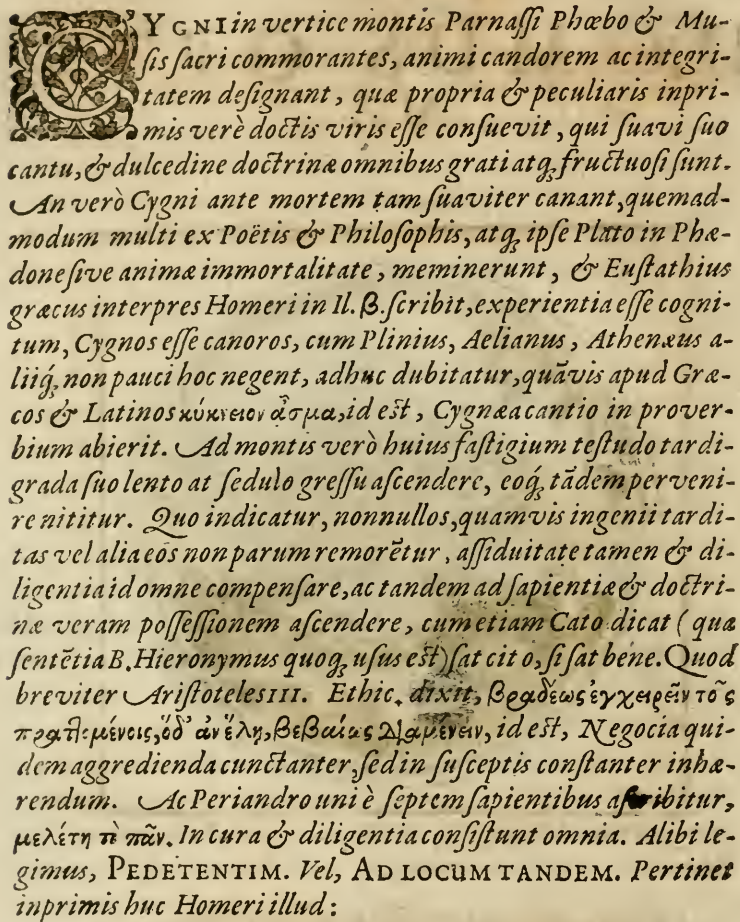 CYGNI in vertice montis Parnaſſi Phœbo & Mu-
ſis ſacri commorantes, animi candorem ac integri-
tatem deſignant, quæ propria & peculiaris inpri-
mis verè doctis viris eſſe conſuevit, qui ſuavi ſuo
cantu, & dulcedine doctrinæ omnibus grati atq; fructuoſi ſunt.
An verò Cygni ante mortem tam ſuaviter canant, quemad-
modum multi ex Poëtis & Philoſophis, atq; ipſe Plato in Phæ-
done ſive animæ immortalitate, meminerunt, & Euſtathius
græcus interpres Homeri in Il. β. ſcribit, experientia eſſe cogni-
tum, Cygnos eſſe canoros, cum Plinius, Aelianus, Athenæus a-
liiq́; non pauci hoc negent, adhuc dubitatur, quāvis apud Græ-
cos & Latinos κύκνειον ἆσμα, id eſt, Cygnæa cantio in prover-
bium abierit. Ad montis verò huius faſtigium teſtudo tardi-
grada ſuo lento at ſedulo greſſu aſcendere, eoq́; tādem perveni-
re nititur. Quo indicatur, nonnullos, quamvis ingenii tardi-
tas vel alia eos non parum remorētur, aſſiduitate tamen & di-
ligentia id omne compenſare, ac tandem ad ſapientiæ & doctri-
næ veram poſſeſſionem aſcendere, cum etiam Cato dicat (qua
ſentētia B. Hieronymus quoq; uſus eſt) ſat cito, ſi ſat bene. Quod
breviter Ariſtoteles III. Ethic. dixit, βραδέως ἐγχειρεῖν τοῖς
πραττομένοις, ὃ δ' ἂν ἕλῃ, βεβαίως διαμένειν, id eſt, Negocia qui-
dem aggredienda cunctanter, ſed in ſuſceptis conſtanter inhæ-
rendum. Ac Periandro uni è ſeptem ſapientibus aſcribitur,
μελέτη τὸ πᾶν. In cura & diligentia conſiſtunt omnia. Alibi le-
gimus, PEDETENTIM. Vel, AD LOCUM TANDEM. Pertinet
inprimis huc Homeri illud: